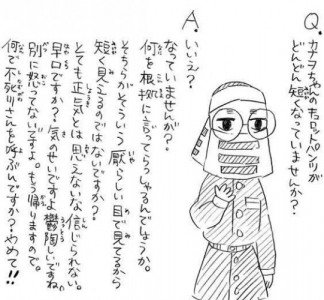 Q.
カナヲちゃんのキュロットパンツが
どんどん短くなっていませんか?
A.
いいえ?
なっていませんが?
何を根拠に言ってらっしゃるんでしょうか。
そちらがそういう厭らしい目で見てるから
短く見えるのではないですか?
とても正気とは思えないな信じられない。
早口ですか?気のせいですよ鬱陶しいですね
別に怒ってないですよ。もう帰りますので。
何で不死川さんを呼ぶんですか?やめて!!